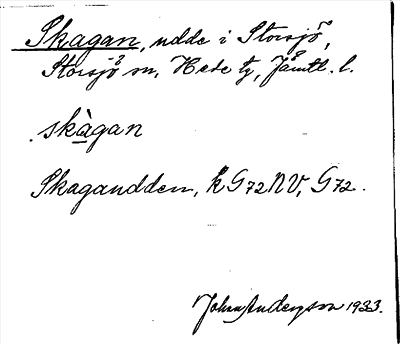 Skagan, udde i Storsjö,
Storsjö sn, Hede tg, Jämtl. l.
skàgan
Skagaudden, k G72NV, G72.
John Anderson 1933.